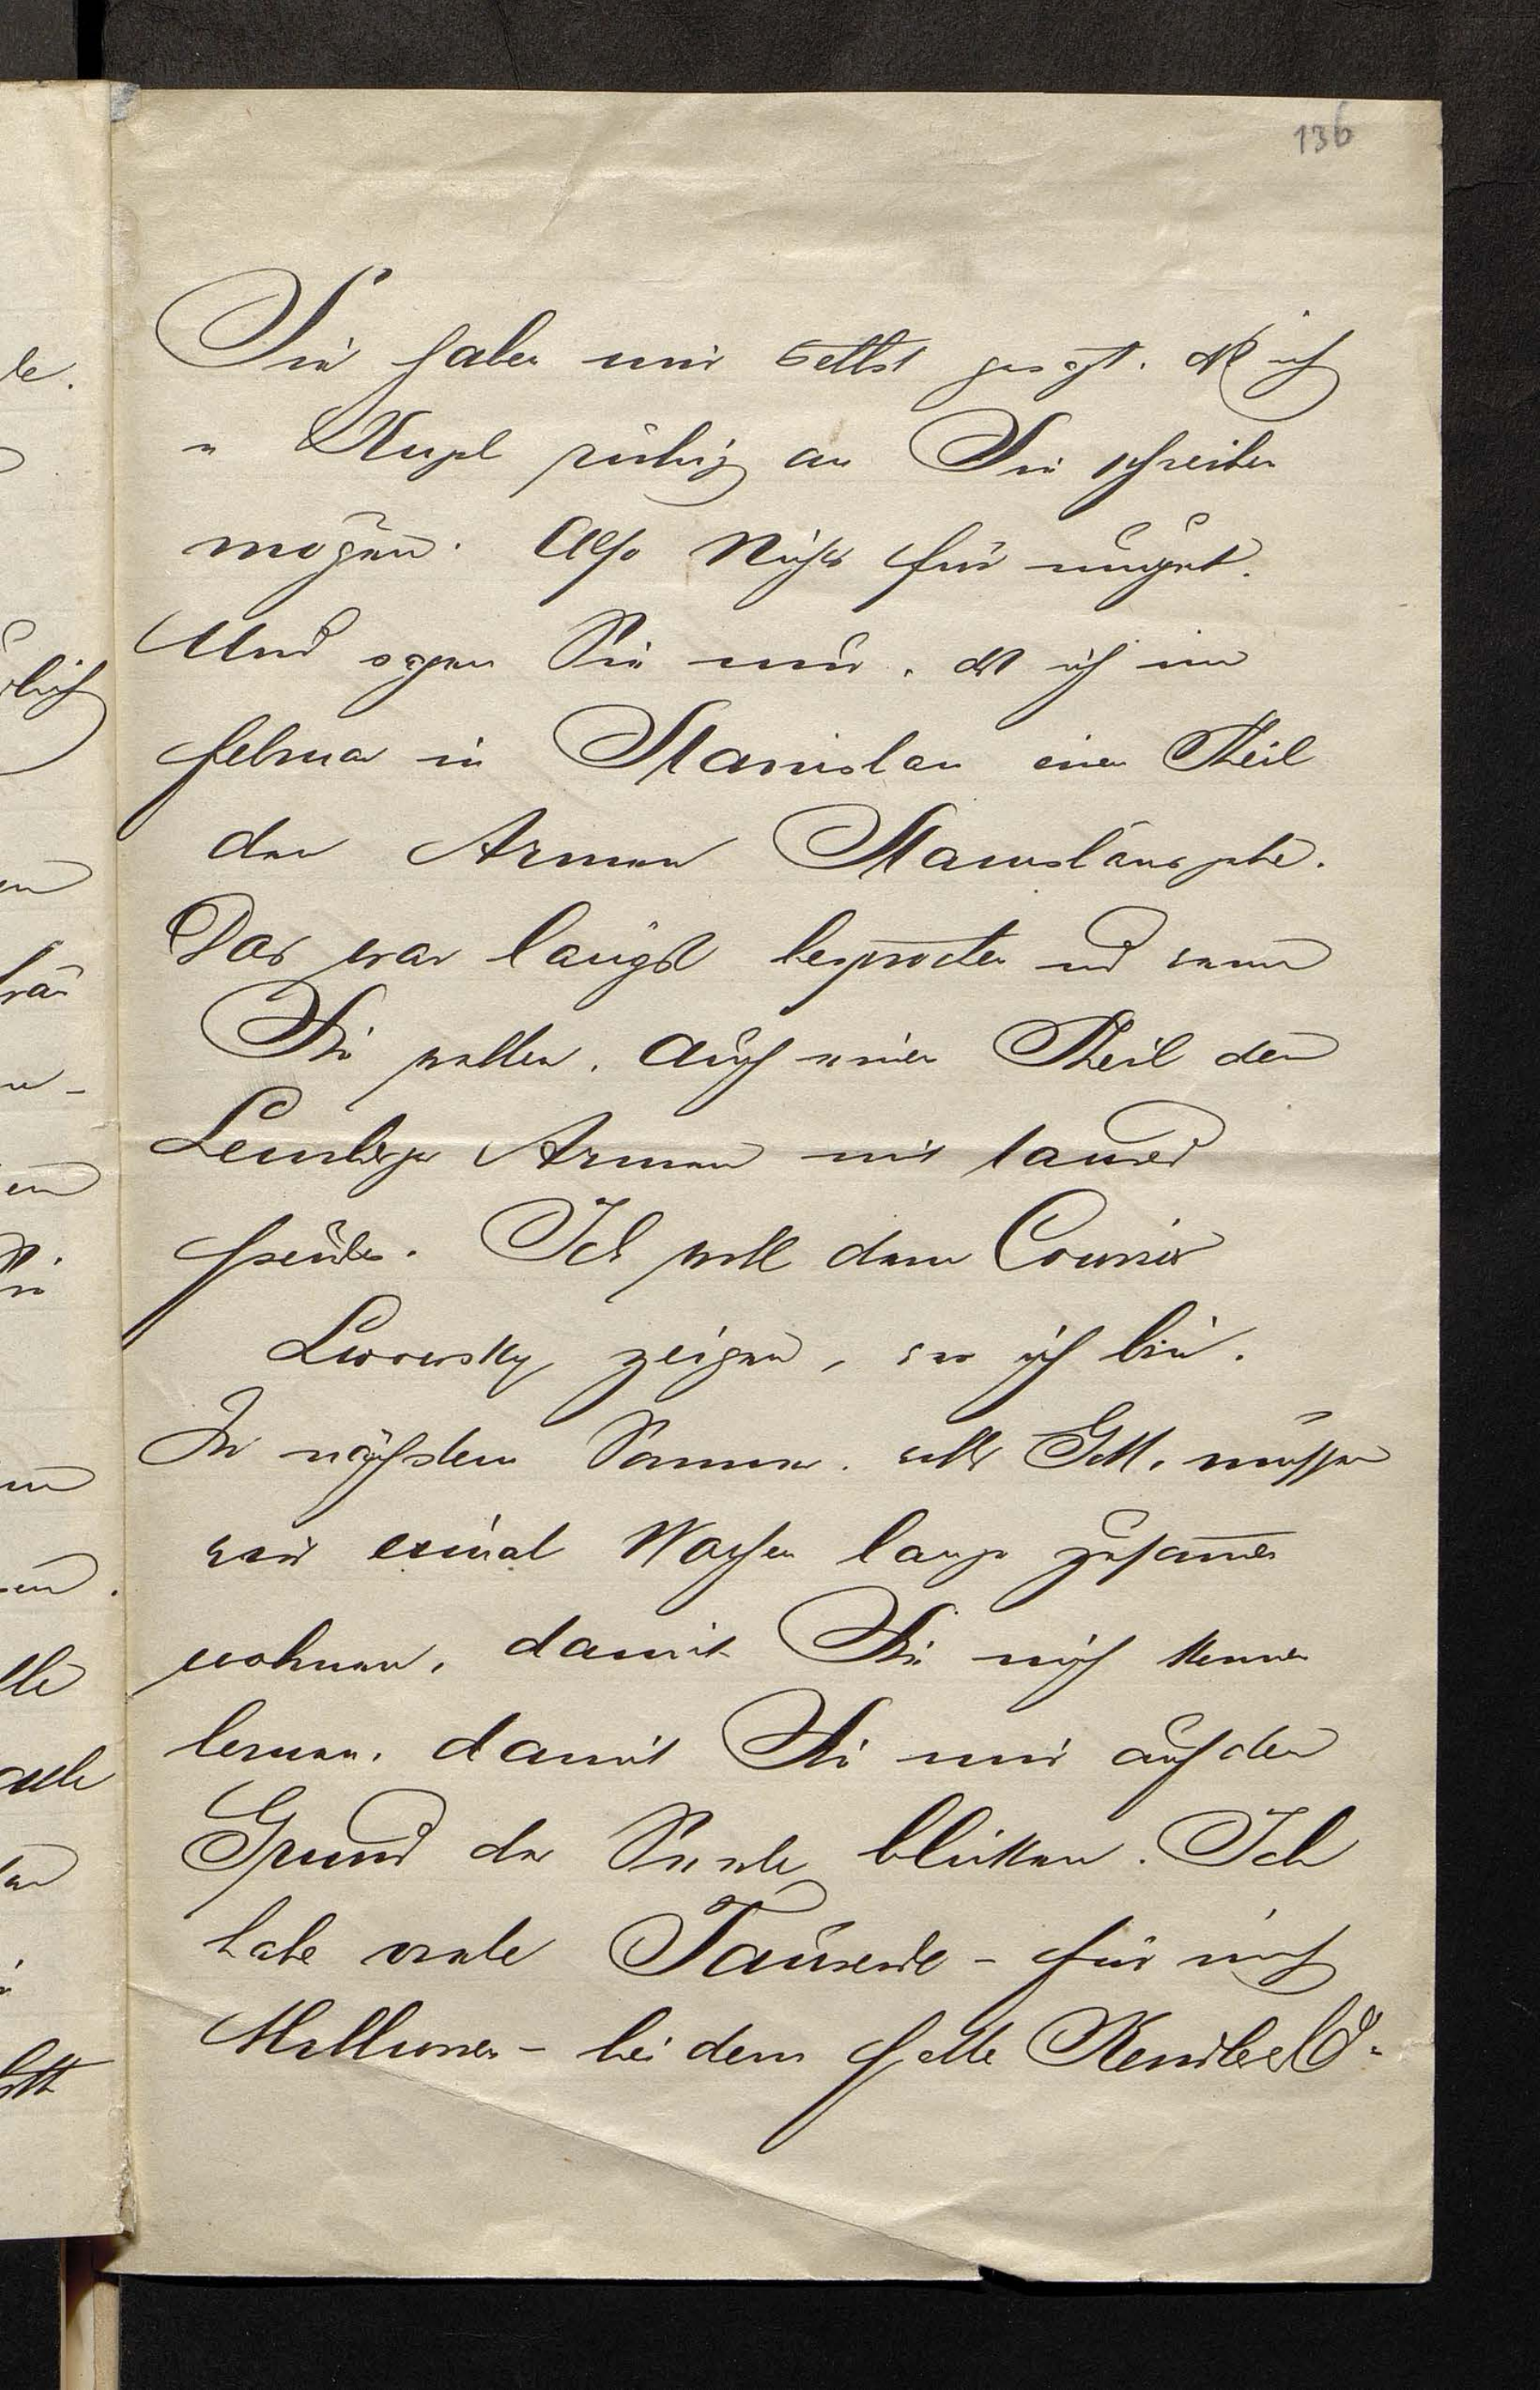 136
Sie haben mir selbst gesagt, daß ich
Kugel ruhig an Sie schreiben
mögen. Also Nichts für ungut.
Und sagen Sie nur, daß ich im
Februar in Stanislau einen Theil
den Armen Stanislaus gebe.
Das war längst besprochen und wenn
Sie wollen, auch einen Theil den
Lemberger Armen mit tausend
Freuden. Ich will dem Courier
Lwowsky zeigen, wer ich bin.
Im nächsten Sommer, will's Gott, müssen
wir einmal Wochen lang zusammen
wohnen, damit Sie mich kennen
lernen, damit Sie mir auf den
Grund der Seele blicken. Ich
habe viele Tausende - für mich
Millionen - bei dem